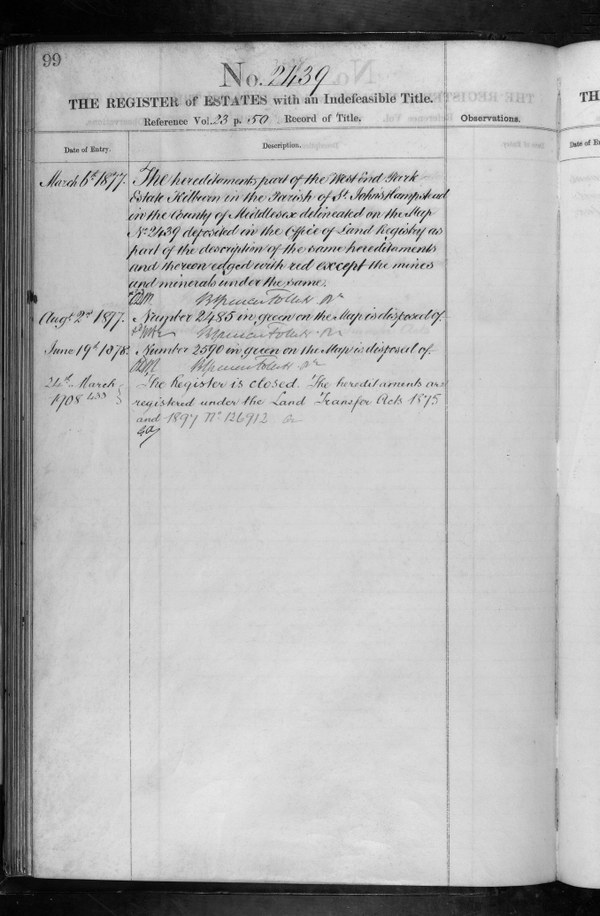 99
No. 2439
THE REGISTER of ESTATES with an Indefeasible Title.
Reference Vol. 23 p. 50 Record of Title.
Observations.
Date of Entry.
Description.
March 6th 1877.
The hereditaments part of the West End Park
Estate Kilburn in the Parish of St. Johns Hampstead
in the County of Middlesex delineated on the Map
No 2439 deposited in the Office of Land Registry as
part of the description of the same hereditaments
and thereon edged with red except the mines
and minerals under the same.
Augt. 2nd 1877.
Number 2485 in green on the Map is disposed of.
June 19th 1878.
Number 2590 in green on the Map is disposed of.
24th March
1908
The Register is closed. The hereditaments are
registered under the Land Transfer Acts 1875
and 1897 No. 126912
TH
Date of E